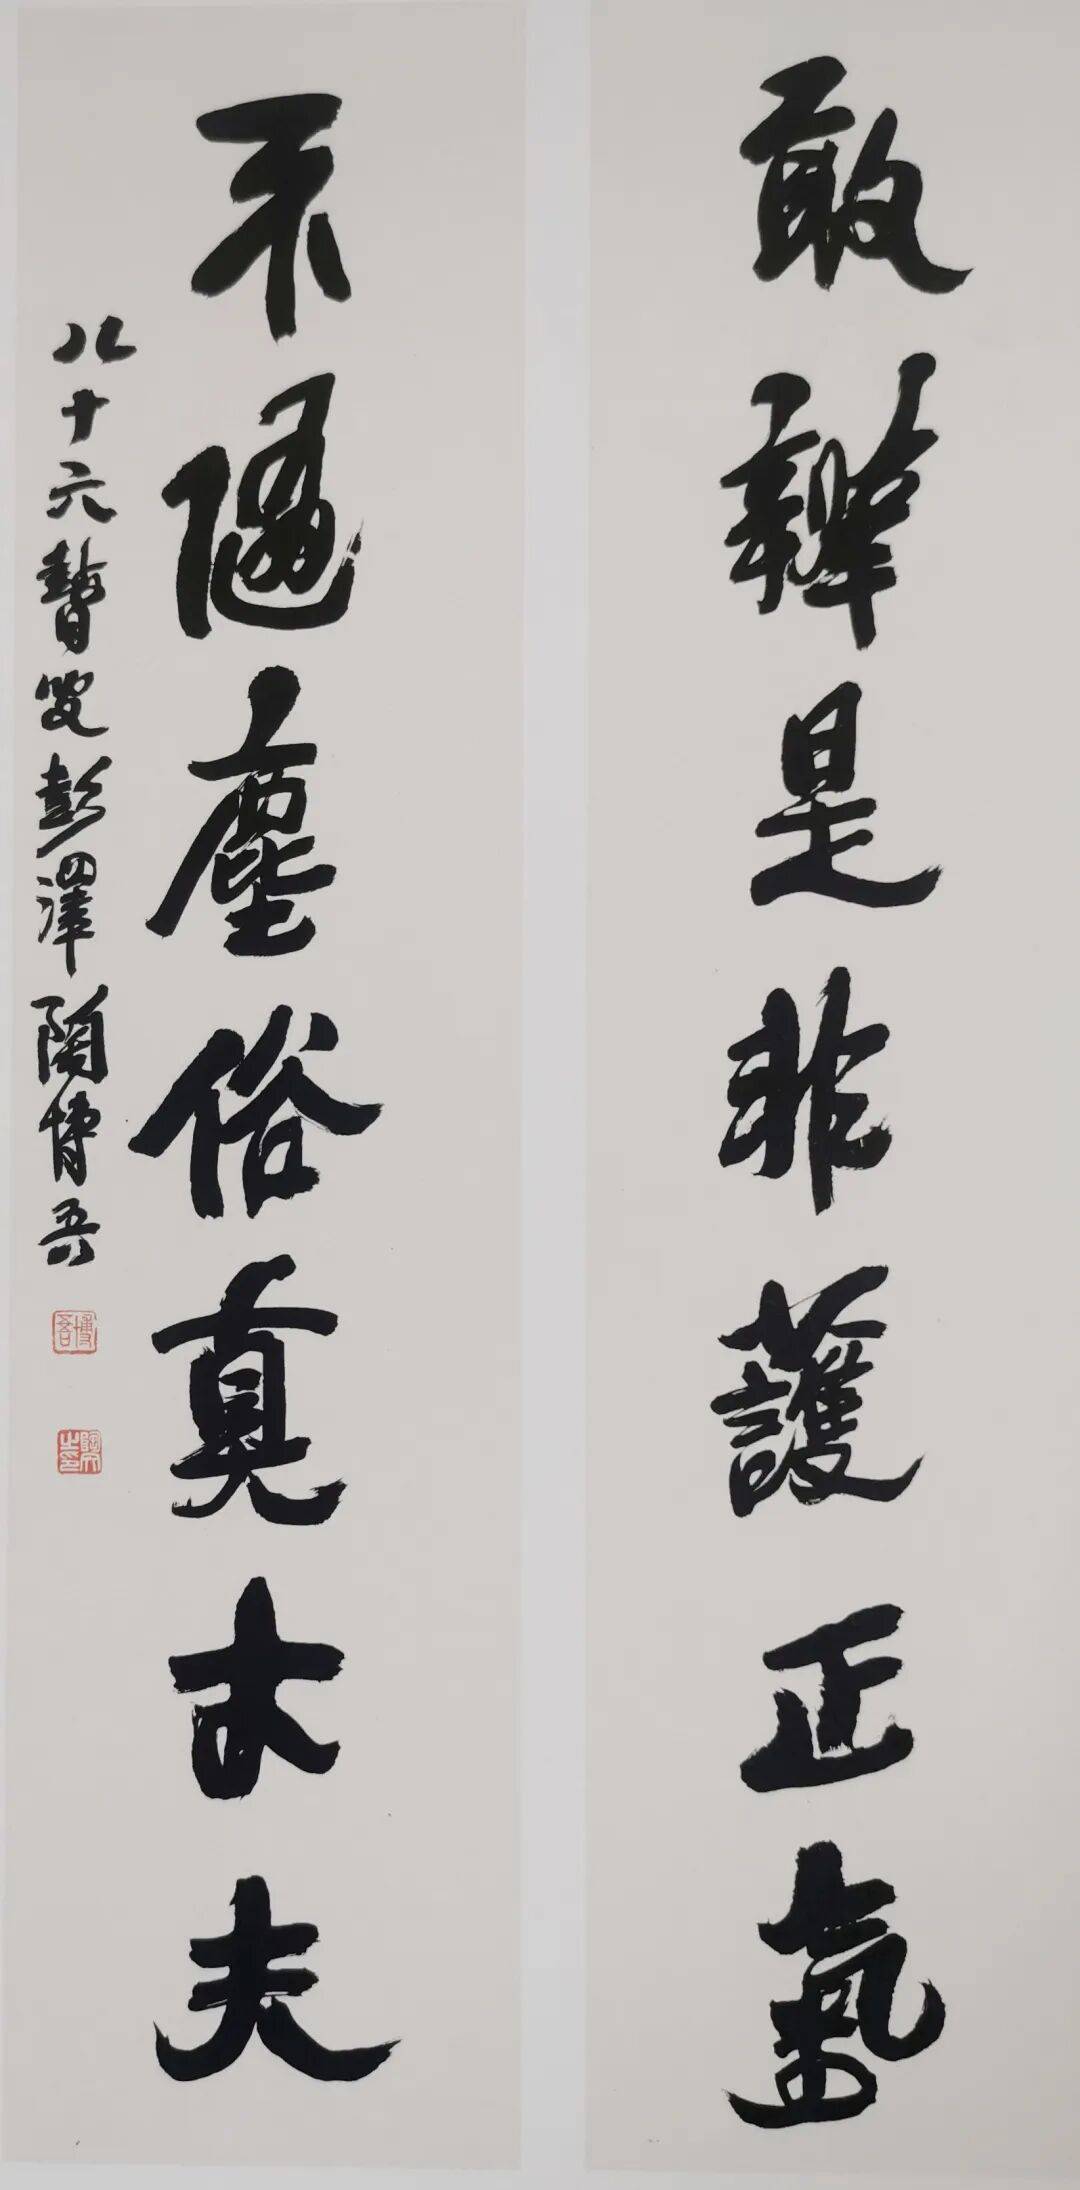 敢辨是非護正氣
不隨塵俗真丈夫
八十六瞽叟彭澤陶博吾
博吾
陶文之印